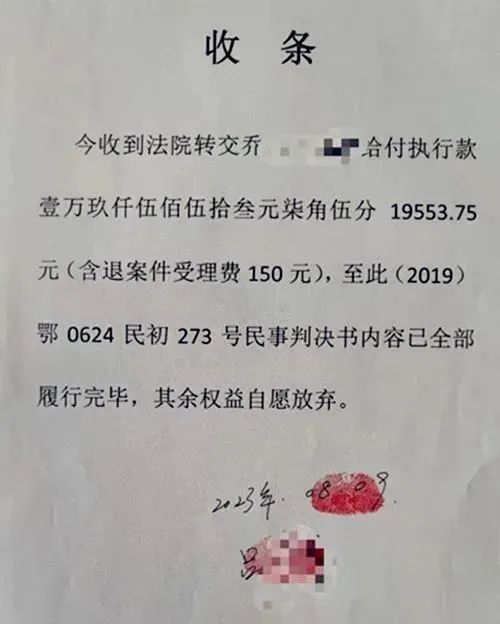 收 条
今收到法院转交乔 给付执行款
壹万玖仟伍佰伍拾叁元柒角伍分 19553.75
元（含退案件受理费 150 元），至此（2019）
鄂 0624 民初 273 号民事判决书内容已全部
履行完毕，其余权益自愿放弃。
2023年.08.09.
吕